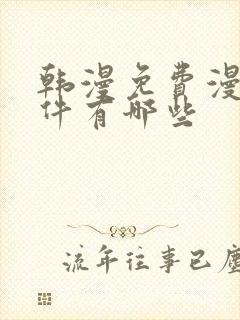 韩漫免费漫
件有哪些
流年往事已尘